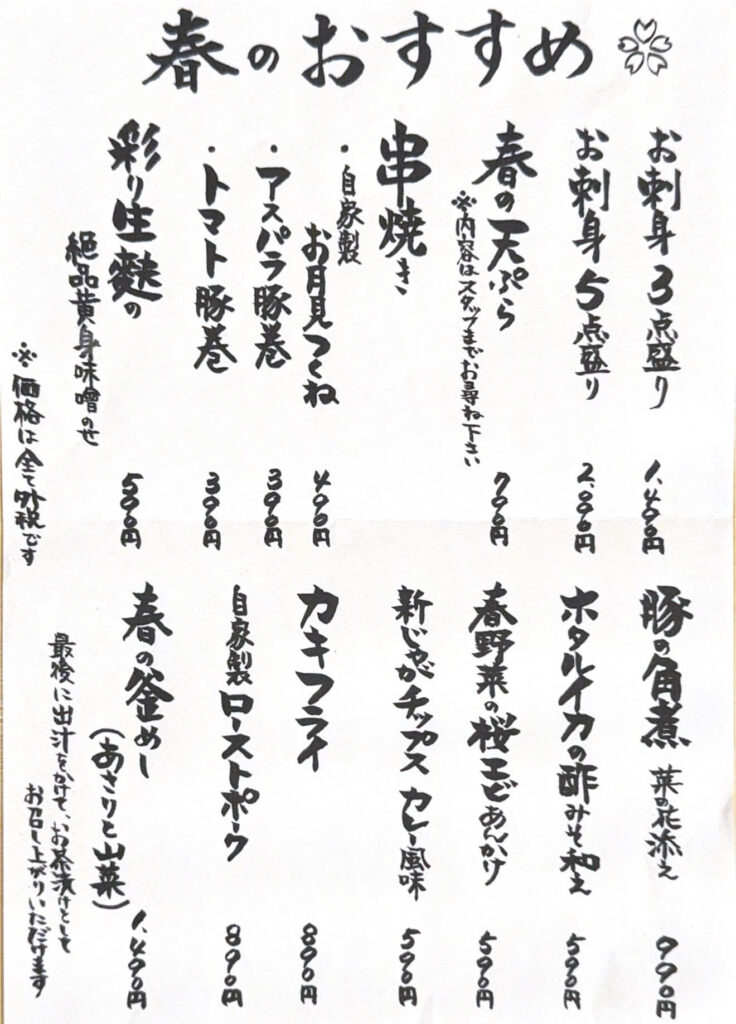 春のおすすめ
お刺身3点盛り 1,490円
お刺身5点盛り 2,090円
春の天ぷら 790円
※内容はスタッフまでお尋ね下さい
串焼き
・自家製お月見つくね 490円
・アスパラ豚巻 390円
・トマト豚巻 390円
彩り生麩の 590円
絶品黄身味噌のせ
※価格は全て外税です
豚の角煮 菜の花添え 990円
ホタルイカの酢みそ和え 590円
春野菜の桜エビあんかけ 590円
新じゃがチップス カレー風味 590円
カキフライ 890円
自家製ローストポーク 890円
春の釜めし
(あさりと山菜) 1,490円
最後に出汁をかけて、お茶漬けとして
お召し上がりいただけます